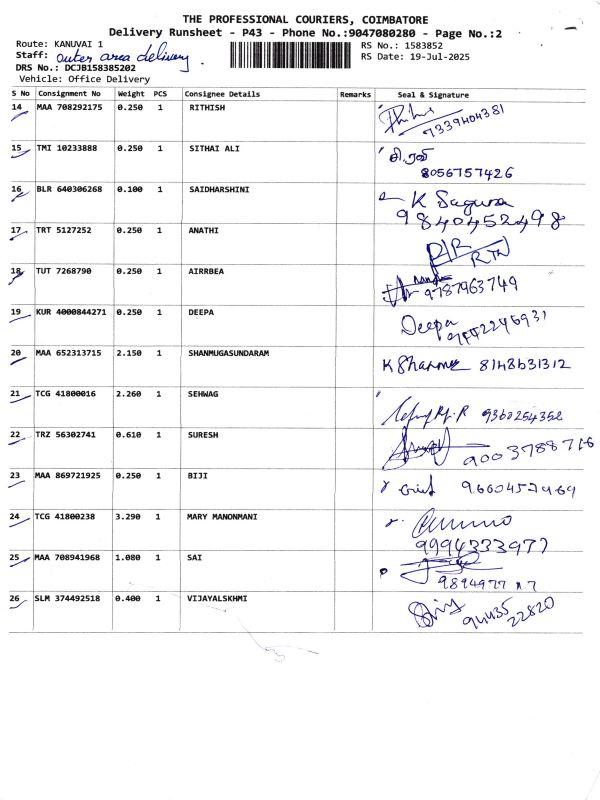 THE PROFESSIONAL COURIERS, COIMBATORE
Delivery Runsheet - P43 - Phone No.:9047080280 - Page No.:2
Route: KANUVAI 1
RS No.: 1583852
Staff: outer area delivery
RS Date: 19-Jul-2025
DRS No.: DCJB158385202
Vehicle: Office Delivery
S No Consignment No Weight PCS Consignee Details Remarks Seal & Signature
14 MAA 708292175 0.250 1 RITHISH
7339404381
15 TMI 10233888 0.250 1 SITHAI ALI
8056757426
16 BLR 640306268 0.100 1 SAIDHARSHINI K Saguna
9840452498
17 TRT 5127252 0.250 1 ANATHI
RTN
18 TUT 7268790 0.250 1 AIRRBEA
9787963749
19 KUR 4000844271 0.250 1 DEEPA Deepa
20 MAA 652313715 2.150 1 SHANMUGASUNDARAM 8148631312
21 TCG 41800016 2.260 1 SEHWAG
9360254352
22 TRZ 56302741 0.610 1 SURESH
9003788716
23 MAA 869721925 0.250 1 BIJI
24 TCG 41800238 3.290 1 MARY MANONMANI
9994333977
25 MAA 708941968 1.080 1 SAI
26 SLM 374492518 0.400 1 VIJAYALSKHMI
94435
22820